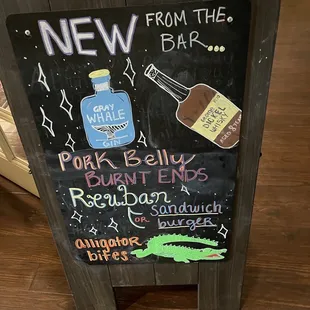 NEW FROM THE
BAR...
GRAY
WHALE
GIN
DICKEL
WHISKY
AGED 8 YR
PORK BELLY
BURNT ENDS
REUBAN
OR SANDWICH
BURGER
alligator
bites